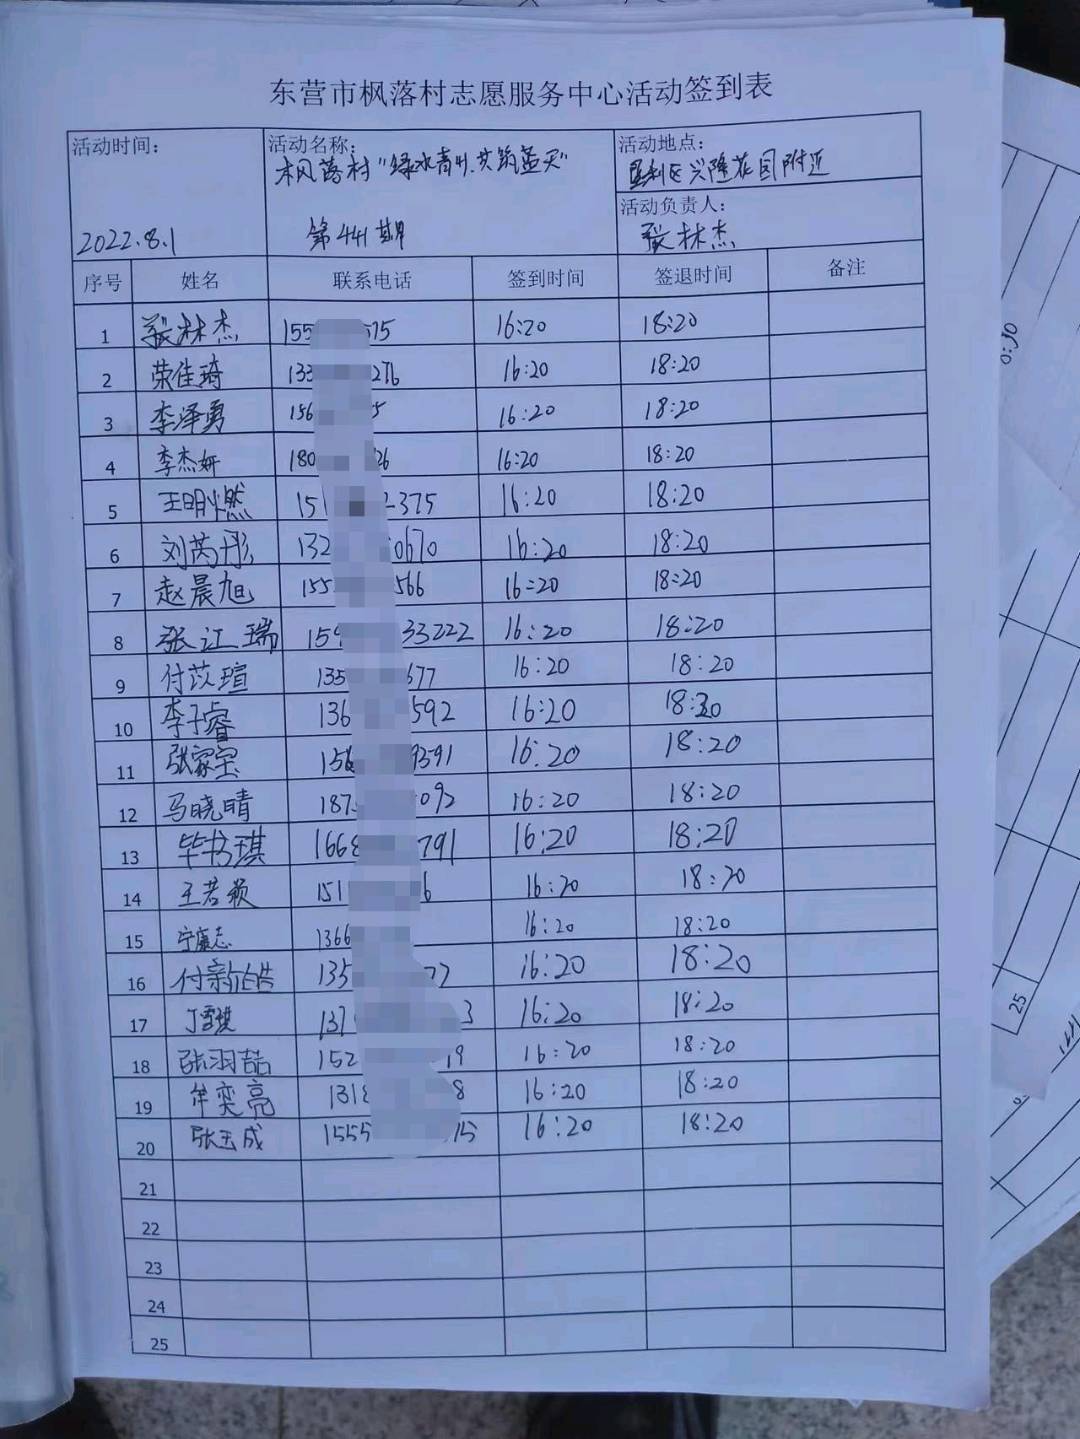 东营市枫落村志愿服务中心活动签到表
活动时间： 活动名称： 活动地点：
枫落村"绿水青山,共筑蓝天" 垦利区兴隆花园附近
活动负责人：
2022.8.1 第441期 张林杰
序号 姓名 联系电话 签到时间 签退时间 备注
1 张林杰 155 575 16:20 18:20
2 荣佳琦 133 276 16:20 18:20
3 李泽勇 156 5 16:20 18:20
4 李杰妍 180 26 16:20 18:20
5 王明燃 151 2375 16:20 18:20
6 刘芮彤 132 0670 16:20 18:20
7 赵晨旭 155 566 16:20 18:20
8 张江瑞 159 33222 16:20 18:20
9 付苡瑄 135 677 16:20 18:20
10 李子睿 136 592 16:20 18:20
11 张家宝 156 9391 16:20 18:20
12 马晓晴 187 092 16:20 18:20
13 毕书琪 1668 791 16:20 18:20
14 王若 151 6 16:20 18:20
15 宁康志 1366 16:20 18:20
16 付新皓 135 72 16:20 18:20
17 丁雪琪 137 3 16:20 18:20
18 张羽喆 152 19 16:20 18:20
19 牟奕亮 1318 8 16:20 18:20
20 张玉成 1555 15 16:20 18:20
21
22
23
24
25
25